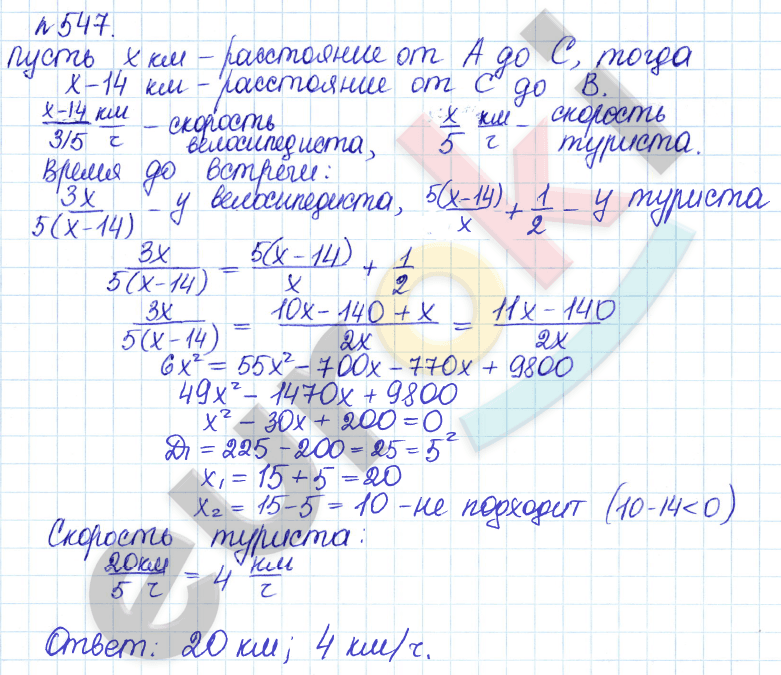 №547.
Пусть x км – расстояние от A до C, тогда
x-14 км – расстояние от C до B.
(x-14)/(3/5) км/ч – скорость велосипедиста, x/5 км/ч – скорость туриста.
Время до встречи:
3x/(5(x-14)) – у велосипедиста, 5(x-14)/x + 1/2 – у туриста
3x/(5(x-14)) = 5(x-14)/x + 1/2
3x/(5(x-14)) = (10x-140+x)/(2x) = (11x-140)/(2x)
6x² = 55x² - 700x - 770x + 9800
49x² - 1470x + 9800
x² - 30x + 200 = 0
D₁ = 225 - 200 = 25 = 5²
x₁ = 15 + 5 = 20
x₂ = 15 - 5 = 10 - не подходит (10-14<0)
Скорость туриста:
20км/5 ч = 4 км/ч
Ответ: 20 км; 4 км/ч.
euroki